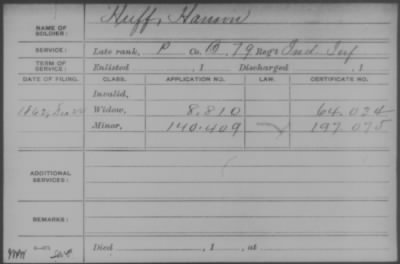 NAME OF SOLDIER: Huff, Hanson
SERVICE: Late rank, P Co. D, 79 Reg't Ind. Inf
TERM OF SERVICE: Enlisted , 1 Discharged , 1
DATE OF FILING. CLASS. APPLICATION NO. LAW. CERTIFICATE NO.
Invalid,
1862, Widow, 8.810 64.024
Minor, 140.409 197.075
ADDITIONAL SERVICES:
REMARKS:
Died , 1 , at